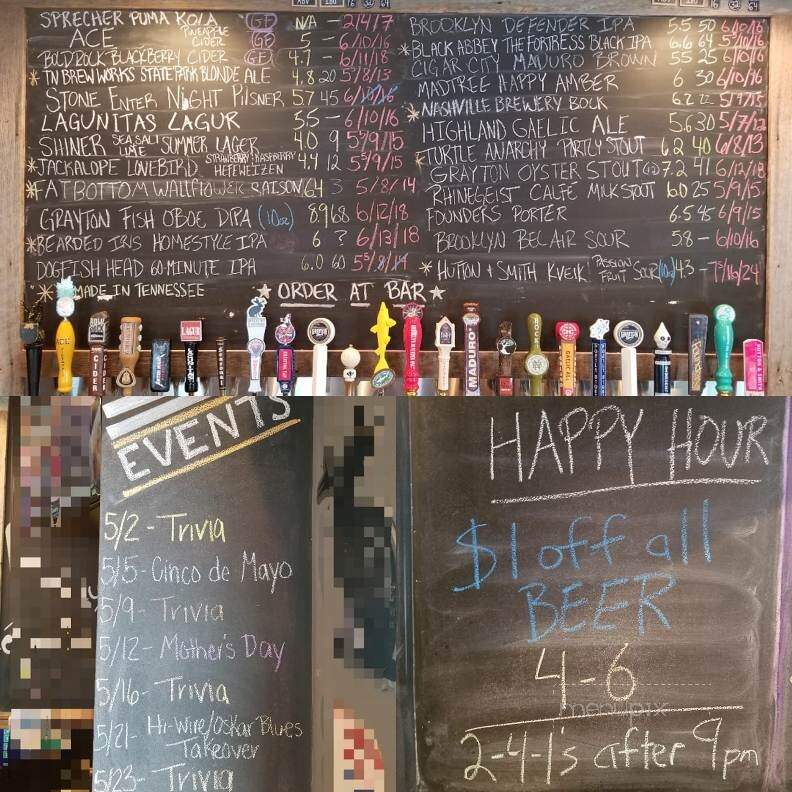 SPRECHER PUMA KOLA (GF) N/A - 2/4/7
ACE PINEAPPLE CIDER (GF) 5 - 6/10/16
BOLD ROCK BLACKBERRY CIDER (GF) 4.7 - 6/11/18
*TN BREW WORKS STATE PARK BLONDE ALE 4.8 20 5/8/13
STONE ENTER NIGHT PILSNER 5.7 45
LAGUNITAS LAGUR 55 - 6/10/16
SHINER SEA SALT LIME SUMMER LAGER 4.0 9 5/9/15
*JACKALOPE LOVEBIRD STRAWBERRY RASPBERRY HEFEWEIZEN 4.9 12 5/9/15
*FAT BOTTOM WALLFLOWER SAISON 6.4 3 5/8/14
GRAYTON FISH OBOE DIPA (10oz) 8.9 68 6/12/18
*BEARDED IRIS HOMESTYLE IPA 6 ? 6/13/18
DOGFISH HEAD 60-MINUTE IPA 6.0 60
*MADE IN TENNESSEE
★ ORDER AT BAR ★
BROOKLYN DEFENDER IPA 5.5 50 6/10/16
*BLACK ABBEY THE FORTRESS BLACK IPA 6.6 64 5/10/16
CIGAR CITY MADURO BROWN 55 25 6/10/16
MADTREE HAPPY AMBER 6 30 6/10/16
*NASHVILLE BREWERY BOCK 6.2 22 5/9/15
HIGHLAND GAELIC ALE 5.6 30 5/7/12
*TURTLE ANARCHY PARTLY STOUT 6.2 40 6/8/13
GRAYTON OYSTER STOUT 7.2 41 6/12/18
RHINEGEIST CALFE MILK STOUT 6.0 25 5/9/15
FOUNDERS PORTER 6.5 45 6/9/15
BROOKLYN BEL AIR SOUR 5.8 - 6/10/16
*HUTTON + SMITH KVEIK PASSION FRUIT SOUR (10oz) 4.3 - 7/16/24
CIDER
MADURO
EVENTS
5/2 - Trivia
5/5 - Cinco de Mayo
5/9 - Trivia
5/12 - Mother's Day
5/16 - Trivia
5/21 - Hi-Wire/Oskar Blues Takeover
5/23 - Trivia
HAPPY HOUR
$1 off all
BEER
4-6
menupix
2-4-1's after 9pm